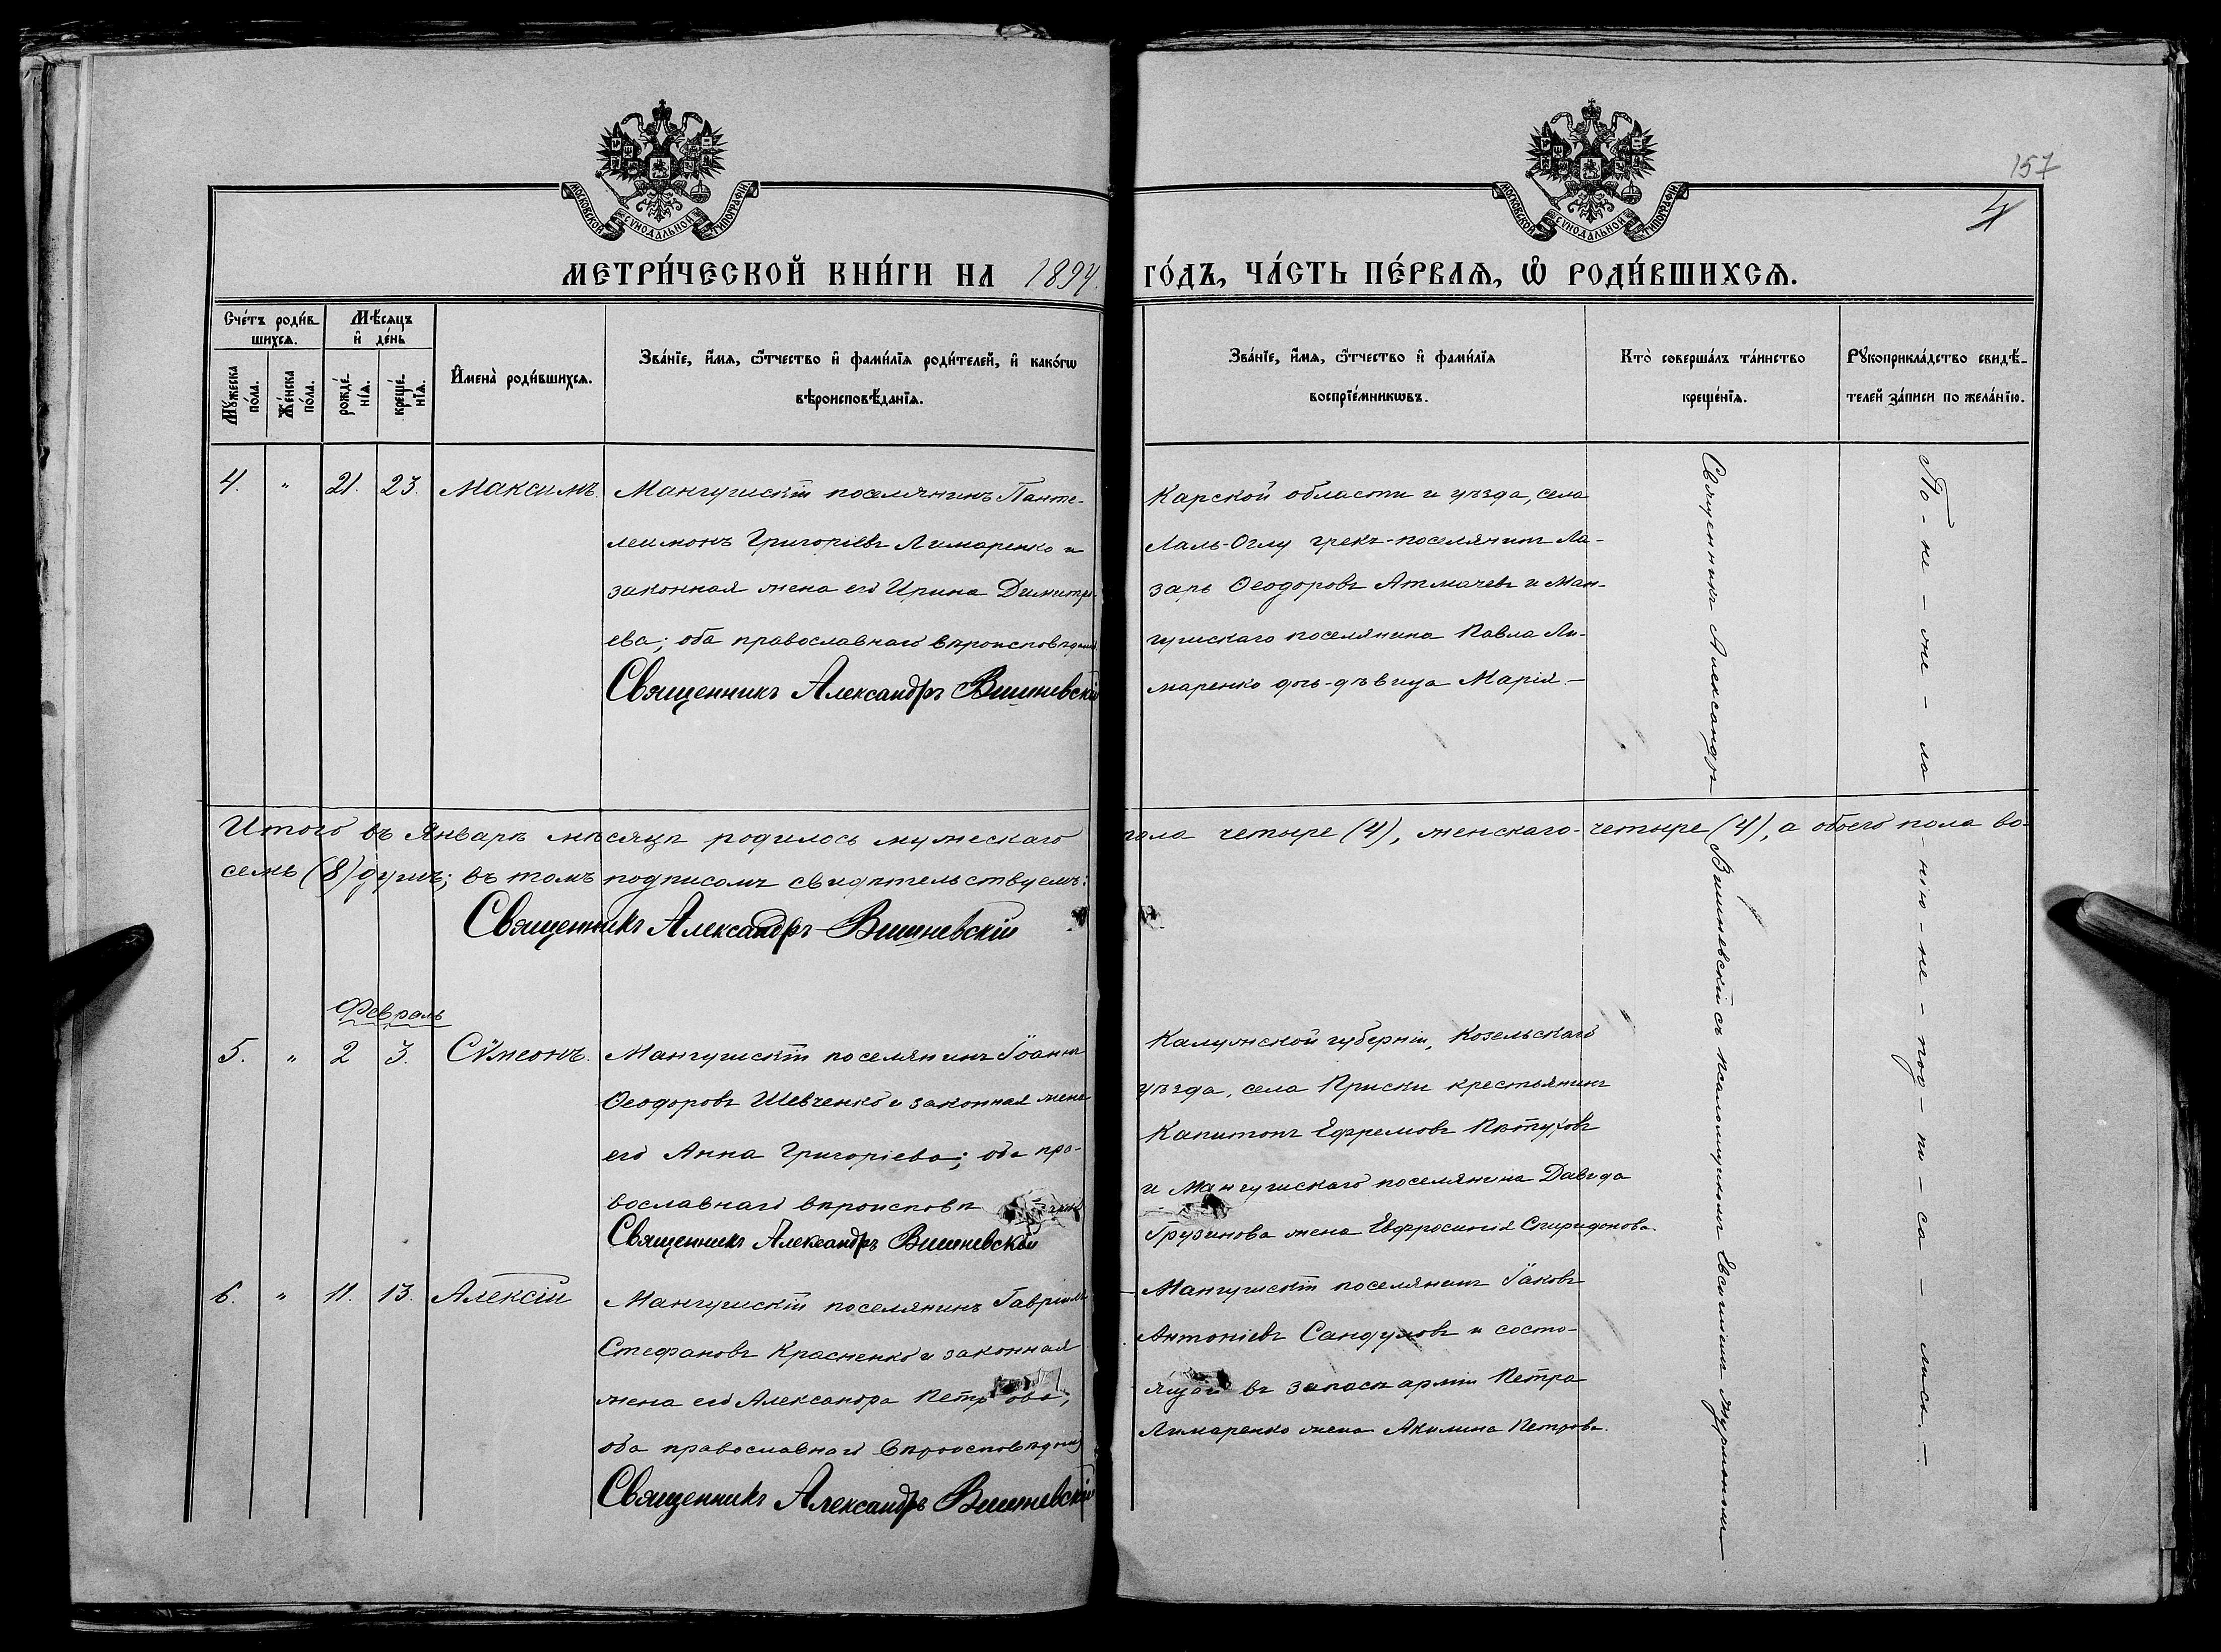 157
4
МОСКОВСКОЙ СѴНОДАЛЬНОЙ ТИПОГРАФІИ
МОСКОВСКОЙ СѴНОДАЛЬНОЙ ТИПОГРАФІИ
МЕТРИ́ЧЕСКОЙ КНИ́ГИ НА 1894. ГО́ДЪ, ЧА́СТЬ ПЕ́РВАѦ, Ѡ҆ РОДИ́ВШИХСѦ.
Сче́тъ роди́в-
шихсѧ.
Мꙋ́жеска по́ла.
Же́нска по́ла.
Мѣ́сѧцъ
и҆ де́нь
рожде́-
нїѧ.
креще́-
нїѧ.
И҆мена̀ роди́вшихсѧ.
Зва́нїе, и҆́мѧ, ѻ҆́тчество и҆ фами́лїѧ роди́телей, и҆ како́гѡ
вѣроисповѣ́данїѧ.
Зва́нїе, и҆́мѧ, ѻ҆́тчество и҆ фами́лїѧ
воспрїе́мникѡвъ.
Кто̀ соверша́лъ та́инство
креще́нїѧ.
Рꙋкоприкла́дство свидѣ́-
телей за́писи по жела́нїю.
4. " 21. 23. Максимъ.
Мангушскій поселянинъ Панте-
леимонъ Григоріевъ Лимаренко и
законная жена его Ирина Димитрі-
ева; оба православнаго
Священникъ Александръ Вишневскій
Карской области и уѣзда, села
Лаль-Оглу грекъ-поселянинъ Ла-
зарь Ѳеодоровъ Атмачевъ и Ман-
гушскаго поселянина Павла Ли-
маренко дочь-дѣвица Марія.-
Итого въ Январѣ мѣсяцѣ родилось мужескаго пола четыре (4), женскаго-четыре (4), а обоего пола во-
семь (8) душъ; въ томъ подписомъ свидѣтельствуемъ:
Священникъ Александръ Вишневскій
Февраль
5. " 2 3. Сѵмеонъ.
Мангушскій поселянинъ Іоаннъ
Ѳеодоровъ Шевченко и законная жена
его Анна Григоріева; оба пра-
вославнаго
Священникъ Александръ Вишневскій
Калужской губерніи, Козельскаго
уѣзда, села Приски крестьянинъ
Капитонъ Ефремовъ Пѣтуховъ
и Мангушскаго поселянина Давида
Грузинова жена Евфросинія Спиридонова.
6. " 11. 13. Алексій
Мангушскій поселянинъ Гавріилъ
Стефановъ Красненко и законная
жена его Александра Петрова,
оба православнаго
Священникъ Александръ Вишневскій
Мангушскій поселянинъ Іаковъ
Антоніевъ Сандуловъ и состо-
ящаго въ запасѣ арміи Петра
Лимаренко жена Акилина Петрова.
Священникъ Александръ Вишневскій съ псаломщикомъ
По-не-же-ла-нію-не-под-пи-са-лись.-